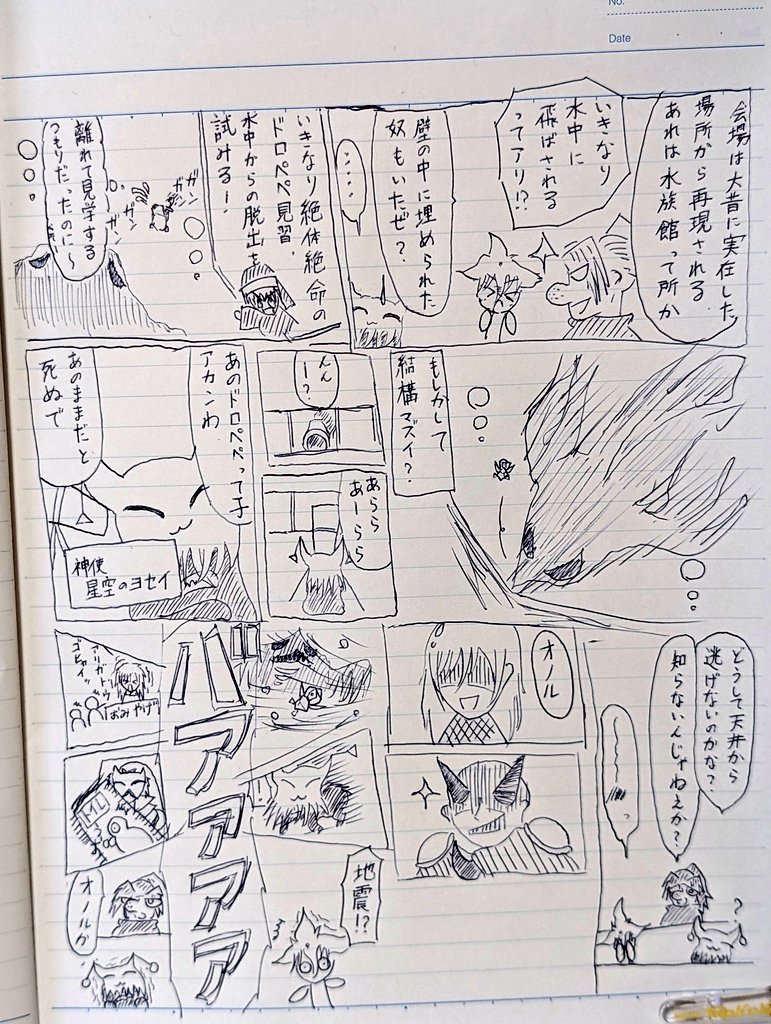 No.
Date
会場は大昔に実在した
場所から再現される
あれは水族館って所か
いきなり
水中に
飛ばされる
ってアリ!?
壁の中に埋められた
奴もいたぜ?
……
いきなり絶体絶命の
ドロペペ見習、
水中からの脱出を
試みる!
ガン
ガン
ガン
離れて見学する
つもりだったのに〜
もしかして
結構マズイ?
んん
ー?
あらら
あーらら
あのドロペペって子
アカンわ
あのままだと
死ぬで
神使
星空のヨセイ
どうして天井から
逃げないのかな?
知らないんじゃねえか?
?
オノル
バアアアアア
地震!?
アリガトウ
ゴザイッ
おみやげ
オノルか